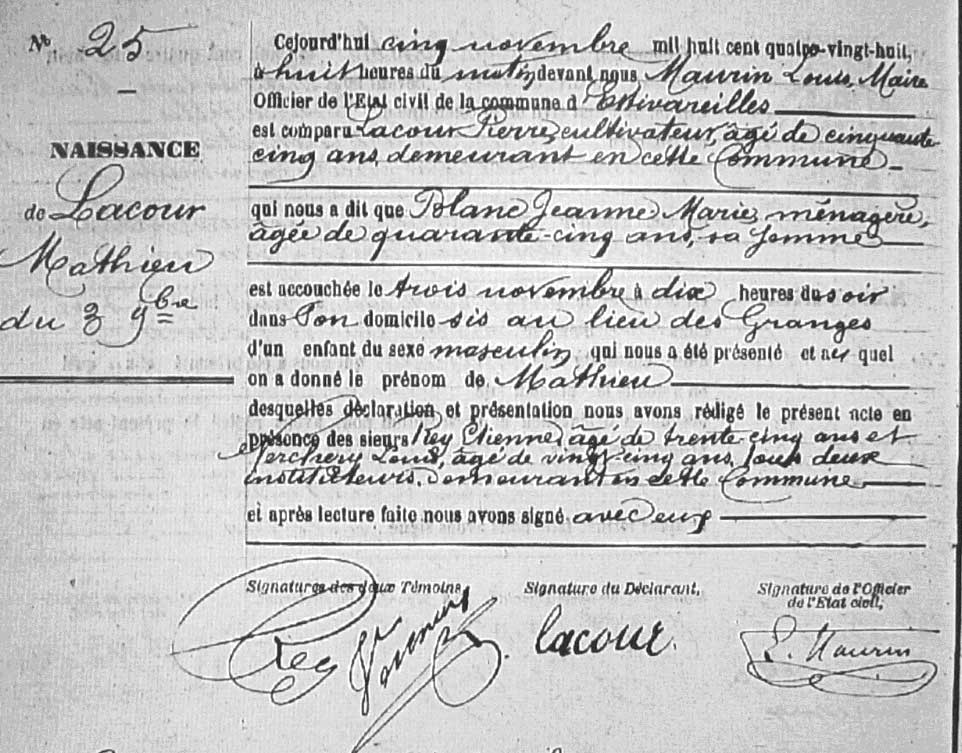 No 25
NAISSANCE
de Lacour
Mathieu
du 3 9bre
Cejourd'hui cinq novembre mil huit cent quatre-vingt-huit,
à huit heures du matin devant nous Maurin Louis, Maire
Officier de l'Etat civil de la commune d'Estivareilles
est comparu Lacour Pierre, cultivateur, âgé de cinquante
cinq ans, demeurant en cette Commune
qui nous a dit que Blanc Jeanne Marie, ménagère,
âgée de quarante-cinq ans, sa femme
est accouchée le trois novembre à dix heures du soir
dans son domicile sis au lieu des Granges
d'un enfant du sexe masculin, qui nous a été présenté et auquel
on a donné le prénom de Mathieu
desquelles déclaration et présentation nous avons rédigé le présent acte en
présence des sieurs Rey Etienne, âgé de trente-cinq ans et
Louis, âgé de vingt-cinq ans, tous deux
instituteurs, demeurant en cette Commune
et après lecture faite nous avons signé avec eux
Signatures des deux Témoins, Signature du Déclarant, Signature de l'Officier
de l'Etat civil,
Rey lacour. L. Maurin